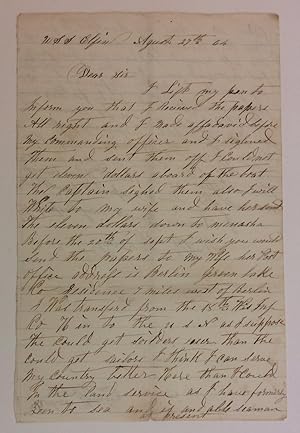 U S S Elfin August 27th 64
Dear Sir
I Lift my pen to
inform you that I Recieved the papers
All right and I made affadavid before
My Commanding officer and I Sighned
Them and sent them off I Could not
get eleven dollars aboard of the boat
The Captain sighed them also I will
Write to my wife and have her send
the eleven dollars down to menasha
Before the 20th of Sept I wish you would
Send the papers to my Wife her Post
office address is Berlin Green Lake
Co Residence 7 miles west of Berlin
I Was transferd from the Wis Inf
Co H in to the U S N as I suppose
the Could get soldiers easer than the
could get sailors I think I can serve
My Country better here than I Could
In the Land Service as I have formerly
Been to sea and seaman
at present